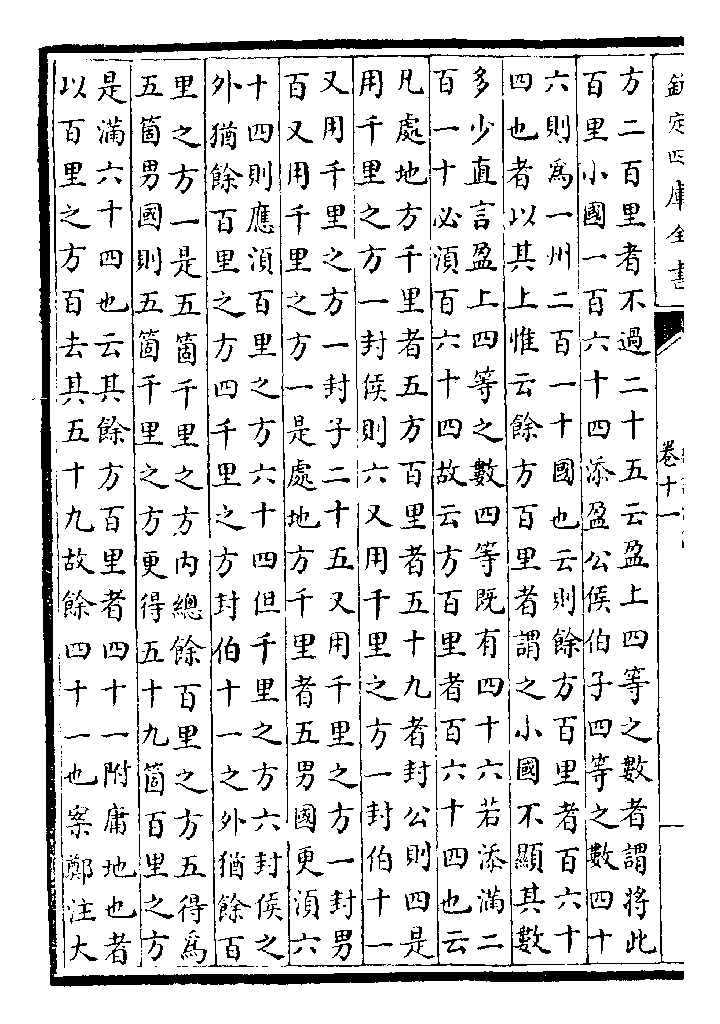 欽定四庫全書
卷十一
方二百里者不過二十五云盈上四等之數者謂將此
百里小國一百六十四添盈公侯伯子四等之數四十
六則爲一州二百一十國也云則餘方百里者百六十
四也者以其上惟云餘方百里者謂之小國不顯其數
多少直言盈上四等之數四等既有四十六若添滿二
百一十必湏百六十四故云方百里者百六十四也云
凡處地方千里者五方百里者五十九者封公則四是
用千里之方一封侯則六又用千里之方一封伯十一
又用千里之方一封子二十五又用千里之方一封男
百又用千里之方一是處地方千里者五男國更湏六
十四則應湏百里之方六十四但千里之方六封侯之
外猶餘百里之方四千里之方封伯十一之外猶餘百
里之方一是五箇千里之方內總餘百里之方五得爲
五箇男國則五箇千里之方更得五十九箇百里之方
是滿六十四也云其餘方百里者四十一附庸地也者
以百里之方百去其五十九故餘四十一也案鄭注大